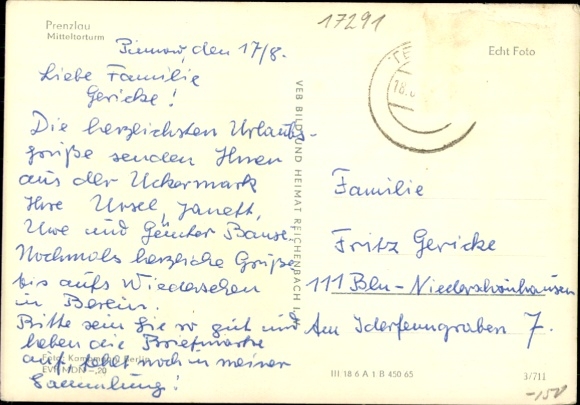 17291
Prenzlau
Mitteltorturm
Echt Foto
den 17/8.
Liebe Familie
Gericke!
Die herzlichsten Urlaubs-
grüße senden Ihnen
aus der Uckermark
Ihre Ursel, Janett,
Uwe und Günter Banse.
Nochmals herzliche Grüße
bis aufs Wiedersehen
in Berlin.
Bitte sein Sie so gut und
heben die Briefmarke
auf, fehlt noch in meiner
Sammlung!
EVP MDN -,20
VEB BILD UND HEIMAT REICHENBACH I. V.
18.
Familie
Fritz Gericke
111 Bln-Niederschönhausen
Am Iderfenngraben 7.
III 18 6 A 1 B 450 65
3/711
-150